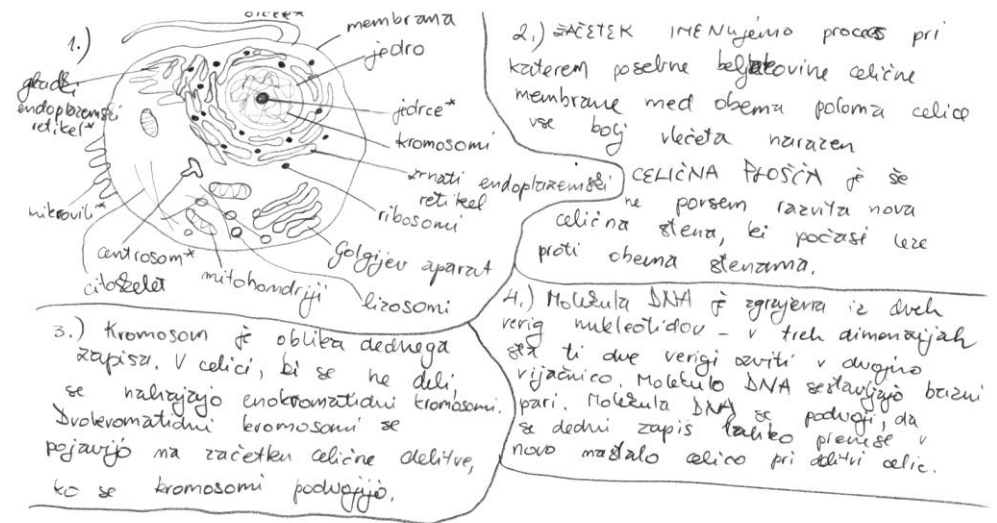 1.)
membrana
jedro
gladki
endoplazemski
retikel*
jedrce*
kromosomi
zrnati endoplazemski
retikel
ribosomi
mikrovili*
Golgijev aparat
centrosom*
mitohondriji
citoskelet
lizosomi
2.) ZAČETEK IMENujemo proces pri
katerem posebne beljakovine celične
membrane med obema poloma celice
vse bolj vlečeta narazen
CELIČNA PLOŠČA je še
ne porsem razvita nova
celična stena, ki počasi leze
proti obema stenama.
3.) Kromosom je oblika dednega
zapisa. V celici, ki se ne deli,
se nahajajo enokromatidni kromosomi.
Dvokromatidni kromosomi se
pojavijo na začetku celične delitve,
ko se kromosomi podvojijo.
4.) Molekula DNA je zgrajena iz dveh
verig nukleotidov - v treh dimenzijah
sta ti dve verigi zaviti v dvojno
vijačnico. Molekulo DNA sestavljajo bazni
pari. Molekula DNA se podvoji, da
se dedni zapis lahko prenese v
novo nastalo celico pri delitvi celic.